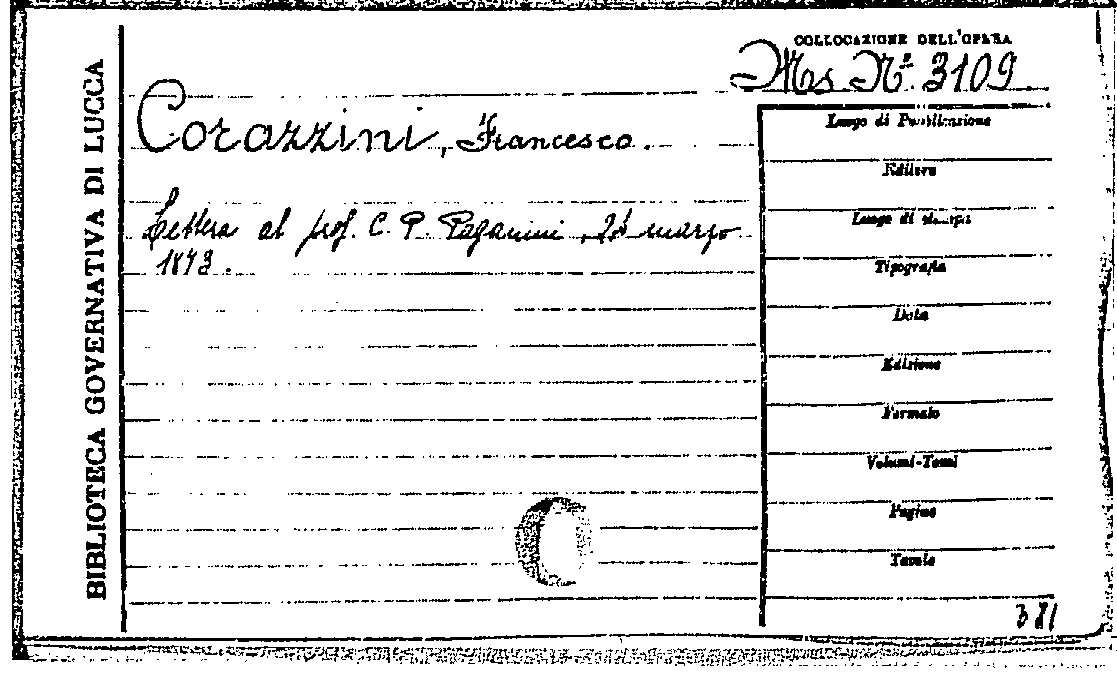 BIBLIOTECA GOVERNATIVA DI LUCCA
COLLOCAZIONE DELL'OPERA
Ms Nº. 3109.
Corazzini, Francesco.
Lettera al prof. C. P. Paganini, marzo
1873.
Luogo di Pubblicazione
Editore
Luogo di stampa
Tipografia
Data
Edizione
Formato
Volumi-Tomi
Pagine
Tavole
381